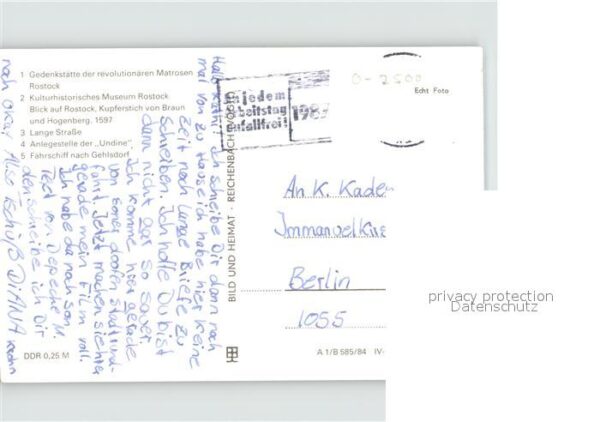 1 Gedenkstätte der revolutionären Matrosen
Rostock
2 Kulturhistorisches Museum Rostock
Blick auf Rostock, Kupferstich von Braun
und Hogenberg. 1597
3 Lange Straße
4 Anlegestelle der „Undine"
5 Fahrschiff nach Gehlsdorf
Hallo Kathi! Ich schreibe Dir dann noch
mal von zu Hause ich habe hier keine
Zeit noch lange Briefe zu
schreiben. Ich hoffe Du bist
dann nicht gar so sauer.
Ich komme hier gerade
von soner doofen Stadtrund-
fahrt. Jetzt machen sie hier
gerade mein Film voll.
Ich habe da noch son
Text von Depeche M.
den schreibe ich Dir
noch okay Also Tschüß DIANA
DDR 0,25 M
BILD UND HEIMAT · REICHENBACH (VOGTL)
jedem
Arbeitstag
unfallfrei!
198
0-2500
Echt Foto
An K. Kade
Immanuelki
Berlin
1055
A 1/B 585/84 IV-
privacy protection
Datenschutz